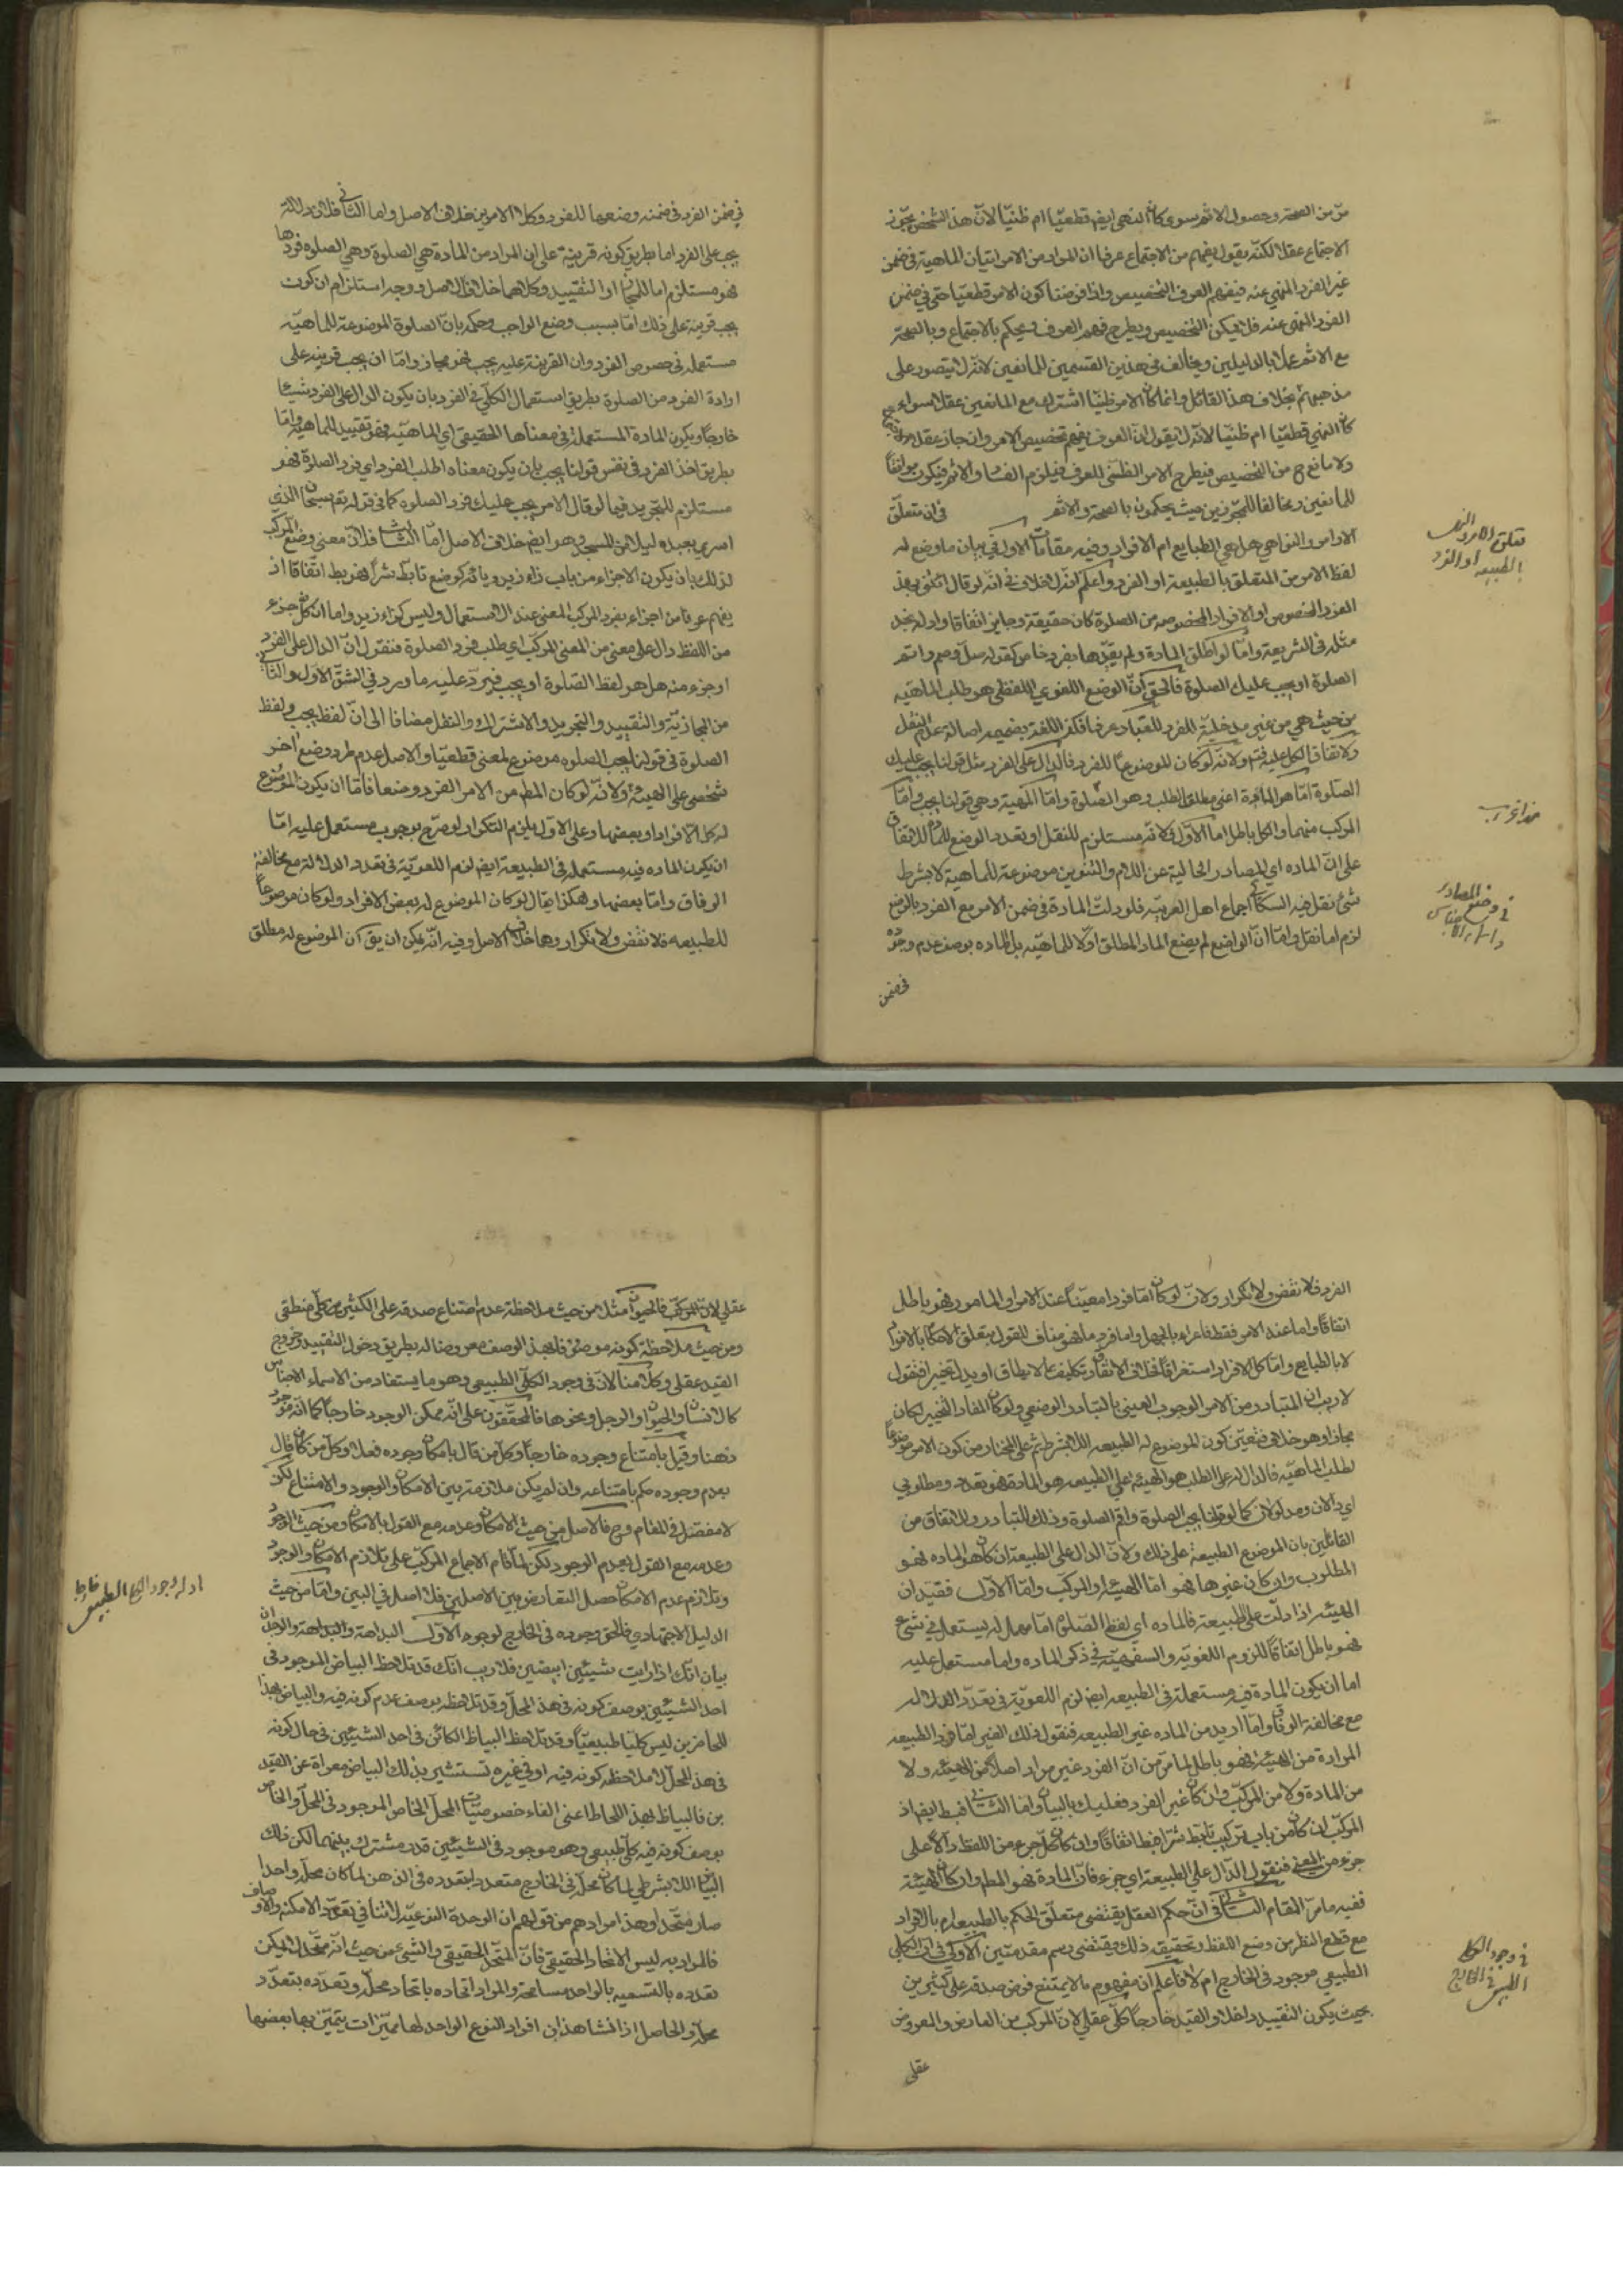 مرّ من الصحة وحصول الاثم سوى كان النهى ايضا قطعيّا ام ظنيّا لانّ هذا الشخص يجوّز
الاجتماع عقلا لكنّه يقول يفهم من الاجتماع عرفا ان المراد من الامر اتيان الماهية فى ضمن
غير الفرد المنهي عنه فيفهم العرف التخصيص واذا فرضنا كون الامر قطعيّا حتى فى ضمن
الفرد المنهى عنه فلا يمكن التخصيص ويطرح فهم العرف ويحكم بالاجتماع وبالصحّة
مع الاثم عملا بالدليلين ويخالف فى هذين القسمين للمانعين لانّه لا يتصور على
مذهبهم بخلاف هذا القائل وانما كان الامر ظنيّا اشترك مع المانعين عقلا سواء
كان النهي قطعيّا ام ظنيّا لانّه لا يقول انّ العرف يفهم تخصيص الامر وان جاز عقلا
ولا مانع ح من التخصيص فيطرح الامر الظنّى للعرف فيلزم الفساد والاثم فيكون موافقاً
للمانعين ومخالفا للمجوّزين حيث يحكمون بالصحة والاثم فى ان متعلّق
الاوامر والنواهي هل هي الطبايع ام الافراد وفيه مقامات الاول فى بيان ما وضع له
لفظ الامر من المتعلق بالطبيعة او الفرد واعلم انّه لا خلاف فى انّه لو قال ائتنى بهذ
الفرد المخصوص او الافراد المخصوصة من الصلوة كان حقيقة وجايز اتفاقا وان لم نجد
مثله فى الشريعة وامّا لو اطلق المادة ولم يقيّدها بفرد خاص كقوله صلّ وصم واقم
الصلوة او يجب عليك الصلوة فالحق انّ الوضع اللغوي اللفظى هو طلب الماهيّة
من حيث هي من غير مدخلية للفرد للتبادر عرفا فكذ اللغة بضميمه اصالة عدم النقل
ولاتفاق الكل عليه فتم ولانّه لو كان الموضوعا للفرد فالدال على الفرد مثل قولنا يجب عليك
الصلوة امّا هو المادة اعنى مطلق الطلب وهو الصلوة وامّا الهيئة وهي قولنا يجب وامّا
المركب منهما والكل باطل اما الاوّل فلانّه مستلزم للنقل او تعدد الوضع
على انّ المادة اي المصادر الخالية عن اللام والتنوين موضوعة للماهية لا بشرط
شئ نقل فيه السكاكى اجماع اهل العربيّة فلو دلّت المادة فى ضمن الامر مع الفرد بالوضع
لزم اما نقل وامّا انّ الواضع لم يضع الماد المطلق اوّلا للماهيّة بل المادة بوصف عدم وجوده
فى ضمن
تعلق الامر والنهى
بالطبيعه او الفرد
فى وضع المصادر
فى ضمن الفرد فى ضمنه وضعها للفرد وكلا الامرين خلاف الاصل واما الثانى فلان دلالة
يجب على الفرد اما بطريق كونه قرينة على ان المراد من المادة هي الصلوة وهي الصلوة فردها
فهو مستلزم اما للمجاز او التقييد وكلاهما خلاف الاصل ووجه استلزام ان كون
يجب قرينة على ذلك امّا بسبب وضع الواجب وحكمه بانّ الصلوة الموضوعة للماهيّة
مستعملة فى خصوص الفرد وان القرينة عليه يجب فهو مجاز وامّا ان يجب قرينة على
ارادة الفرد من الصلوة بطريق استعمال الكلّي فى الفرد بان يكون الدال على الفرد شيئا
خارجاً ويكون المادة المستعملة فى معناها الحقيقي اي الماهيّة فهو تقييد للماهيّة وامّا
بطريق اخذ الفرد فى نفس قولنا يجب بان يكون معناه اطلب الفرد اي فرد الصلوة فهو
مستلزم للتجريد فيما لو قال الامر يجب عليك فرد الصلوة كما فى قوله تع سبحان الذي
اسرى بعبده ليلا من المسجد وهو ايضا خلاف الاصل امّا الثالث فلانّ معنى وضع المركب
لذلك بان يكون الاجزاء من باب زاء زيد ويائه كوضع تابّط شرّاً فهو بط اتّفاقا اذ
يفهم عرفا من اجزاء مفرد المركب المعنى عند الاستعمال وليس كزاء زيد واما ان كان كل جزء
من اللفظ دال على معنى من المعنى المركّب اي طلب فرد الصلوة فنقول انّ الدال على الفرد
او جزء منه هل هو لفظ الصّلوة او يجب فيردّ عليه ما ورد فى الشقّ الاوّل والثانى
من المجازيّة والتقييد والتجريد والاشتراك والنقل مضافا الى انّ لفظ يجب ولفظ
الصلوة فى قولنا يجب الصلوة موضوع لمعنى قطعيّا والاصل عدم طرد وضع اخر
شخصى على الهيئة ولانّه لو كان المطم من الامر الفرد وضعا فامّا ان يكون الموضوع
له كل الافراد او بعضها وعلى الاوّل يلزم التكرار لو صرّح بوجوب مستعمل عليه امّا
ان يكون الماده فيه مستعملة فى الطبيعة ايضا لزم اللغويّة فى تعدد الدلالة مع مخالفة
الوفاق وامّا بعضها وهكذا يقال لو كان الموضوع له بعض الافراد ولو كان موضوعاً
للطبيعه فلا نقض ولا تكرار وهما خلاف الاصل وفيه انّه يمكن ان يق ان الموضوع له مطلق
الفرد فلا نقض ولا تكرار ولانّ لو كان امّا فردا معيّناً عند الامر او المامور فهو باطل
اتفاقا واما عند الامر فقط فاغراء بالجهل واما فرد ما فهو مناف للقول بتعلق الاحكام بالافراد
لا بالطبايع وامّا كل الافراد استغراقاً فخلاف الاتّفاق وتكليف بما لا يطاق او بدلا تخييرا فنقول
لا ريب ان المتبادر من الامر الوجوب العينى بالتبادر الوضعي ولو كان المفاد التخيير لكان
مجازا وهو خلاف فتعيّن كون الموضوع له الطبيعه اللا بشرط ثم على المختار من كون الامر موضوعاً
لطلب الماهيّة فالدال على الطلب هو الهيئة وعلى الطبيعه هو المادة فهو تعدد ومطلوبي
اي دالان ومدلولان كما لو قلنا يجب الصلوة واقم الصلوة وذلك للتبادر وللاتفاق من
القائلين بان الموضوع الطبيعة على ذلك ولانّ الدال على الطبيعة ان كان هو الماده فهو
المطلوب وان كان غيرها فهو امّا الهيئة او المركّب وامّا الاوّل فقيه ان
الهيئة اذا دلّت على الطبيعة فالماده اي لفظ الصّلوة امّا مهمل لم يستعمل فى شئ
فهو باطل اتفاقاً للزوم اللغويّة والسفهيّة فى ذكر الماده واما مستعمل عليه
اما ان يكون المادة فيه مستعملة فى الطبيعه ايضا لزم اللغويّة فى تعدّد الدلاله
مع مخالفة الوفاق وامّا اريد من الماده غير الطبيعه فنقول ذلك الغير امّا فرد الطبيعه
المرادة من الهيئة فهو باطل لما مرّ من انّ الفرد غير مراد اصلا لا من الهيئه ولا
من المادة ولا من المركّب وان كان غير الفرد فعليك بالبيان واما الثانى فبط ايضا اذ
المركّب ان كان من باب تركيب تابّط شرّا فبط اتفاقاً وان كان كلّ جزء من اللفظ دالّاً على
جزء من المعنى فنقول الدّال على الطبيعة اي جزء فانّ المادة فهو المطم وان كان الهيئة
ففيه ما مرّ المقام الثانى انّ حكم العقل يقتضى متعلّق الحكم بالطبيعه ام بالافراد
مع قطع النظر عن وضع اللفظ وتحقيقه ذلك يقتضى رسم مقدمتين الاولى فى ان الكلى
الطبيعي موجود فى الخارج ام لا فاعلم ان مفهوم ما لا يمتنع فرض صدقه على كثيرين
بحيث يكون التقييد داخلا والقيد خارجاً كلّى عقلي لانّ المركب من العارض والمعروض
عقلى
فى وجود الكلى
الطبيعى فى الخارج
عقلي لانّ المركّب فالحيوان مثلا من حيث ملاحظة عدم امتناع صدقه على الكثيرين كلّى منطقى
ومن حيث ملاحظة كونه موصوفا بهذ الوصف معروضا له بطريق دخول التقييد وخروج
القيد عقلى وكلامنا الان فى وجود الكلّى الطبيعى وهو ما يستفاد من الاسماء الاجناس
كالانسان والحيوان او الرجل ونحوها فالمحقّقون على انّه ممكن الوجود خارجاً كما انّه موجود
ذهنا وقيل بامتناع وجوده خارجاً وكل من قال بامكان وجوده فعلا وكل من كان قال
بعدم وجوده حكم بامتناعه وان لم يكن ملازمة بين الامكان والوجود والامتناع لكن
لا مفصّل فى المقام وح فالاصل من حيث الامكان وعدمه مع القول بالامكان ومن حيث الوجود
وعدمه مع القول بعدم الوجود لكن لما قام الاجماع المركّب على تلازم الامكان والوجود
وتلازم عدم الامكان حصل التعارض بين الاصلين فلا اصل فى البين وامّا من حيث
الدليل الاجتهادي فالحق وجوده فى الخارج لوجوه الاوّل البداهة والوجدان
بيان انّك اذا رايت شيئين ابيضين فلا ريب انّك قد تلاحظ البياض الموجود فى
احد الشيئين بوصف كونه فى هذ المحلّ وقد تلاحظه بوصف عدم كونه فيه والبياض بهذا
اللحاظين ليس كليّا طبيعيّاً وقد تلاحظ البياظ الكائن فى احد الشيئين فى حال كونه
فى هذ المحلّ لا ملاحظه كونه فيه او فى غيره تستشير بذلك البياض معراة عن القيد
ين فالبياظ بهذ اللحاظ اعنى الغاء خصوصيّات المحلّ الخاص الموجود فى المحلّ والخاص
بوصف كونه فيه كلّى طبيعي وهو موجود فى الشيئين قدر مشترك بينهما لكن ذلك
البياض اللا بشرطي لما كان محلّه فى الخارج متعددا تعدده فى الذهن لما كان محلّه واحدا
صار متّحدا وهذا مرادهم من قولهم ان الوحدة النوعيّة لا تنافى تعدّد الامكنة والاوصاف
فالمراد به ليس الاتحاد الحقيقي فانّ المتّحد الحقيقى والشئ من حيث انّه متّحد لا يمكن
تعدده بالتسمية بالواحد مسامحة والمراد اتحاده باتحاد محلّه وتعدّده بتعدّد
محلّه والحاصل اذا نشاهد ان افراد النوع الواحد لها مميّزات يتميّز بها بعضها
ادلة وجود الكلى الطبيعى خارجا